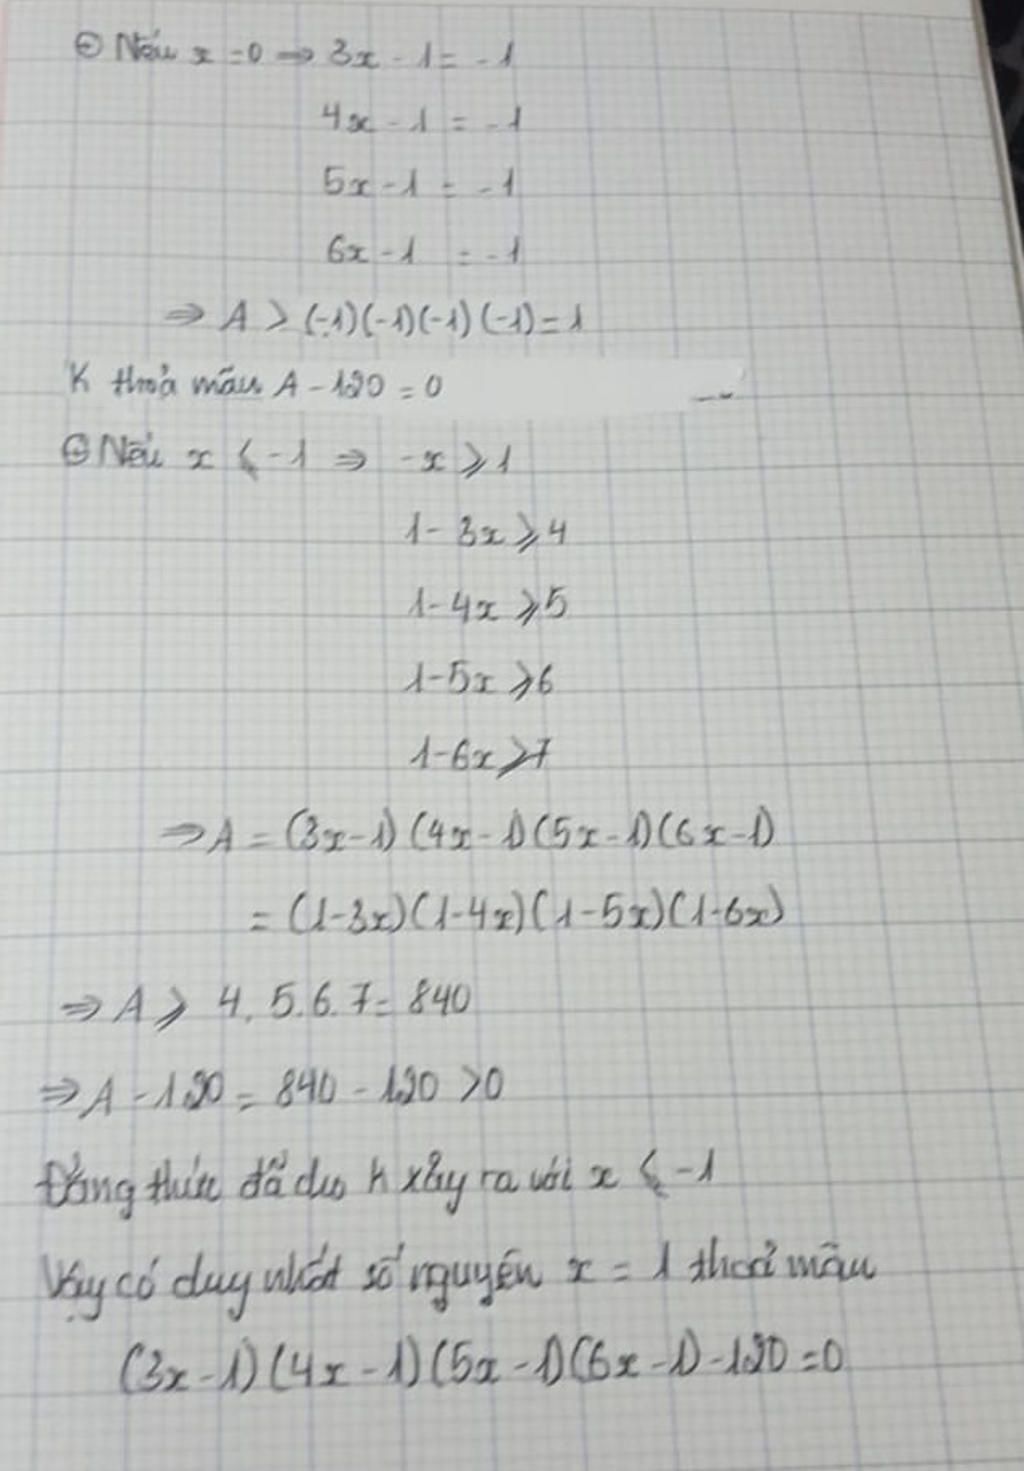 ⊕ Nếu x = 0 ⇒ 3x - 1 = -1
4x - 1 = -1
5x - 1 = -1
6x - 1 = -1
⇒ A > (-1)(-1)(-1)(-1) = 1
K thoả mãn A - 120 = 0
⊕ Nếu x ⩽ -1 ⇒ -x ⩾ 1
1 - 3x ⩾ 4
1 - 4x ⩾ 5
1 - 5x ⩾ 6
1 - 6x ⩾ 7
⇒ A = (3x - 1)(4x - 1)(5x - 1)(6x - 1)
= (1 - 3x)(1 - 4x)(1 - 5x)(1 - 6x)
⇒ A ⩾ 4. 5. 6. 7 = 840
⇒ A - 120 = 840 - 120 > 0
Đẳng thức đã k xảy ra với x ⩽ -1
Vậy có duy nhất số nguyên x = 1 thoả mãn
(3x - 1)(4x - 1)(5x - 1)(6x - 1) - 120 = 0